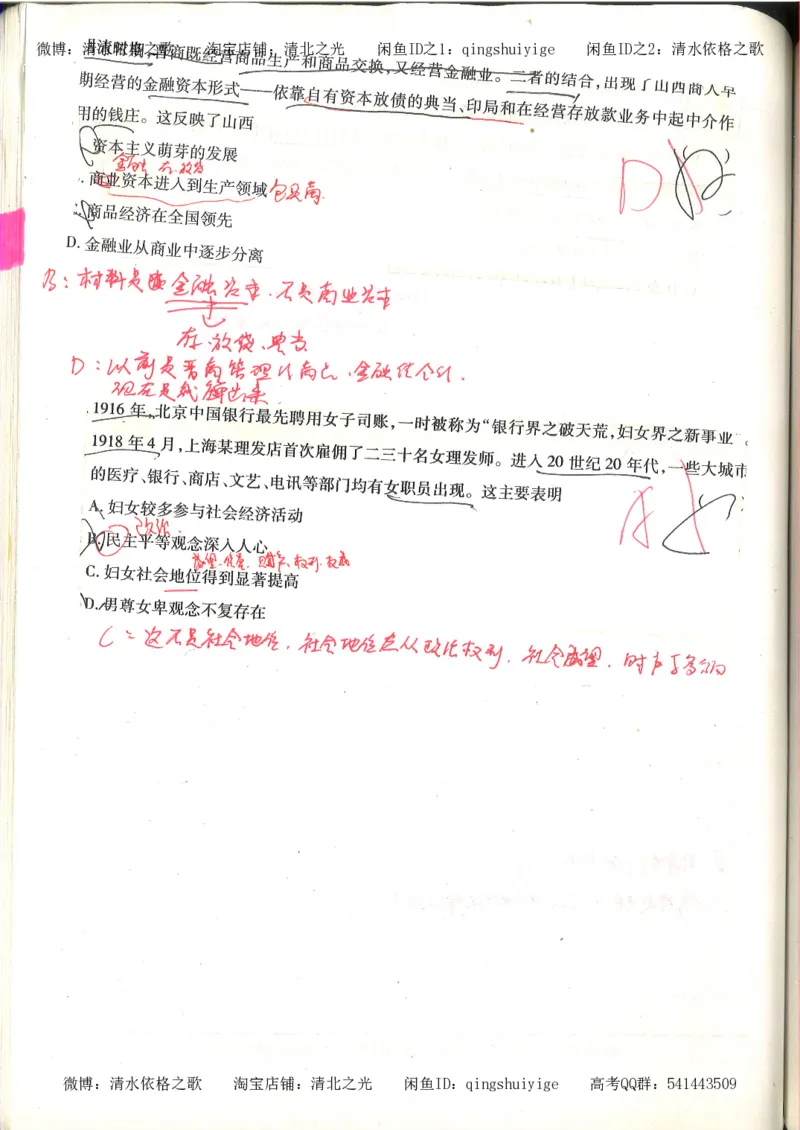 微博：清水依格之歌 淘宝店铺：清北之光 闲鱼ID之1：qingshuiyige 闲鱼ID之2：清水依格之歌
明清时期，晋商既经营商品生产和商品交换，又经营金融业。二者的结合，出现了山西商人早
期经营的金融资本形式——依靠自有资本放债的典当、印局和在经营存放款业务中起中介作
用的钱庄。这反映了山西
资本主义萌芽的发展
金融 存、放贷
商业资本进入到生产领域
D
商品经济在全国领先
D. 金融业从商业中逐步分离
B：材料是 金融资本．不是商业资本
存、放贷、典当
D：以前是晋商管理
1916 年，北京中国银行最先聘用女子司账，一时被称为“银行界之破天荒，妇女界之新事业”。
1918 年 4 月，上海某理发店首次雇佣了二三十名女理发师。进入 20 世纪 20 年代，一些大城市
的医疗、银行、商店、文艺、电讯等部门均有女职员出现。这主要表明
A. 妇女较多参与社会经济活动
A
政治
B. 民主平等观念深入人心
C. 妇女社会地位得到显著提高
D. 男尊女卑观念不复存在
C：这不是社会地位．社会地位是从政治权利．社会威望．
微博：清水依格之歌 淘宝店铺：清北之光 闲鱼ID：qingshuiyige 高考QQ群：541443509